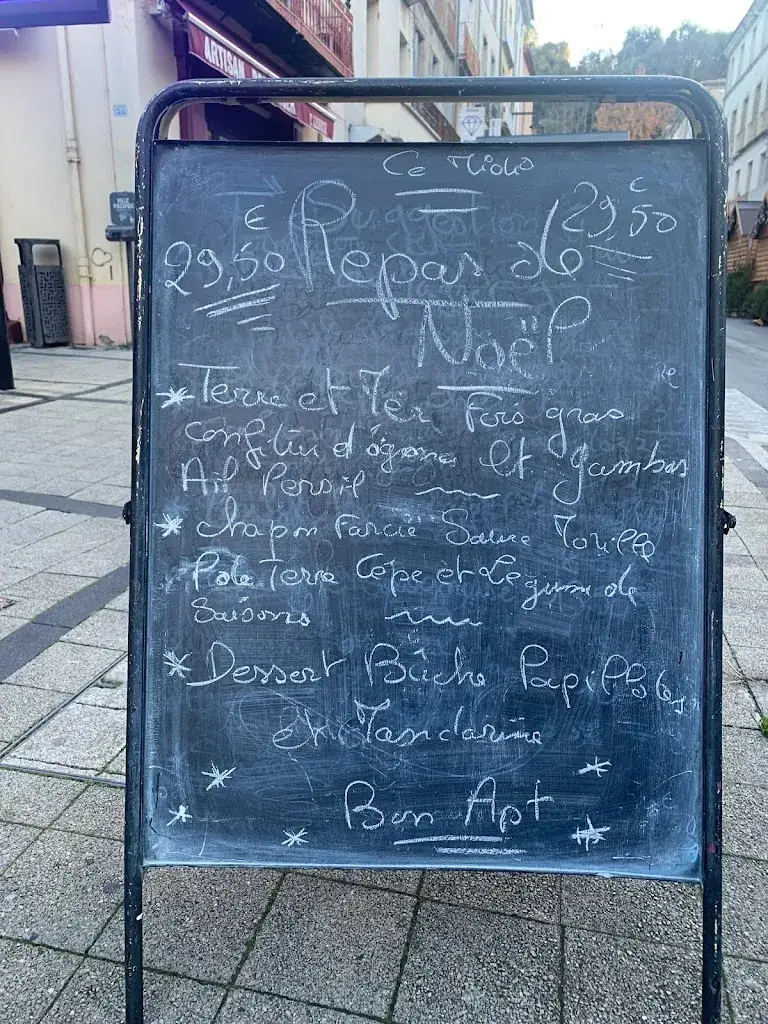 ARTISAN
Ce Midi
€ Repas de 29,50 €
29,50
Noël
* Terre et Mer Fois gras
confitur d'ognons et gambas
Ail Persil
* Chapon Farcie Sauce Morille
Pole Terre Cepe et Legum de
Saisons
* Dessert Bûche Papillotes
et Mandarine
Bon Apt